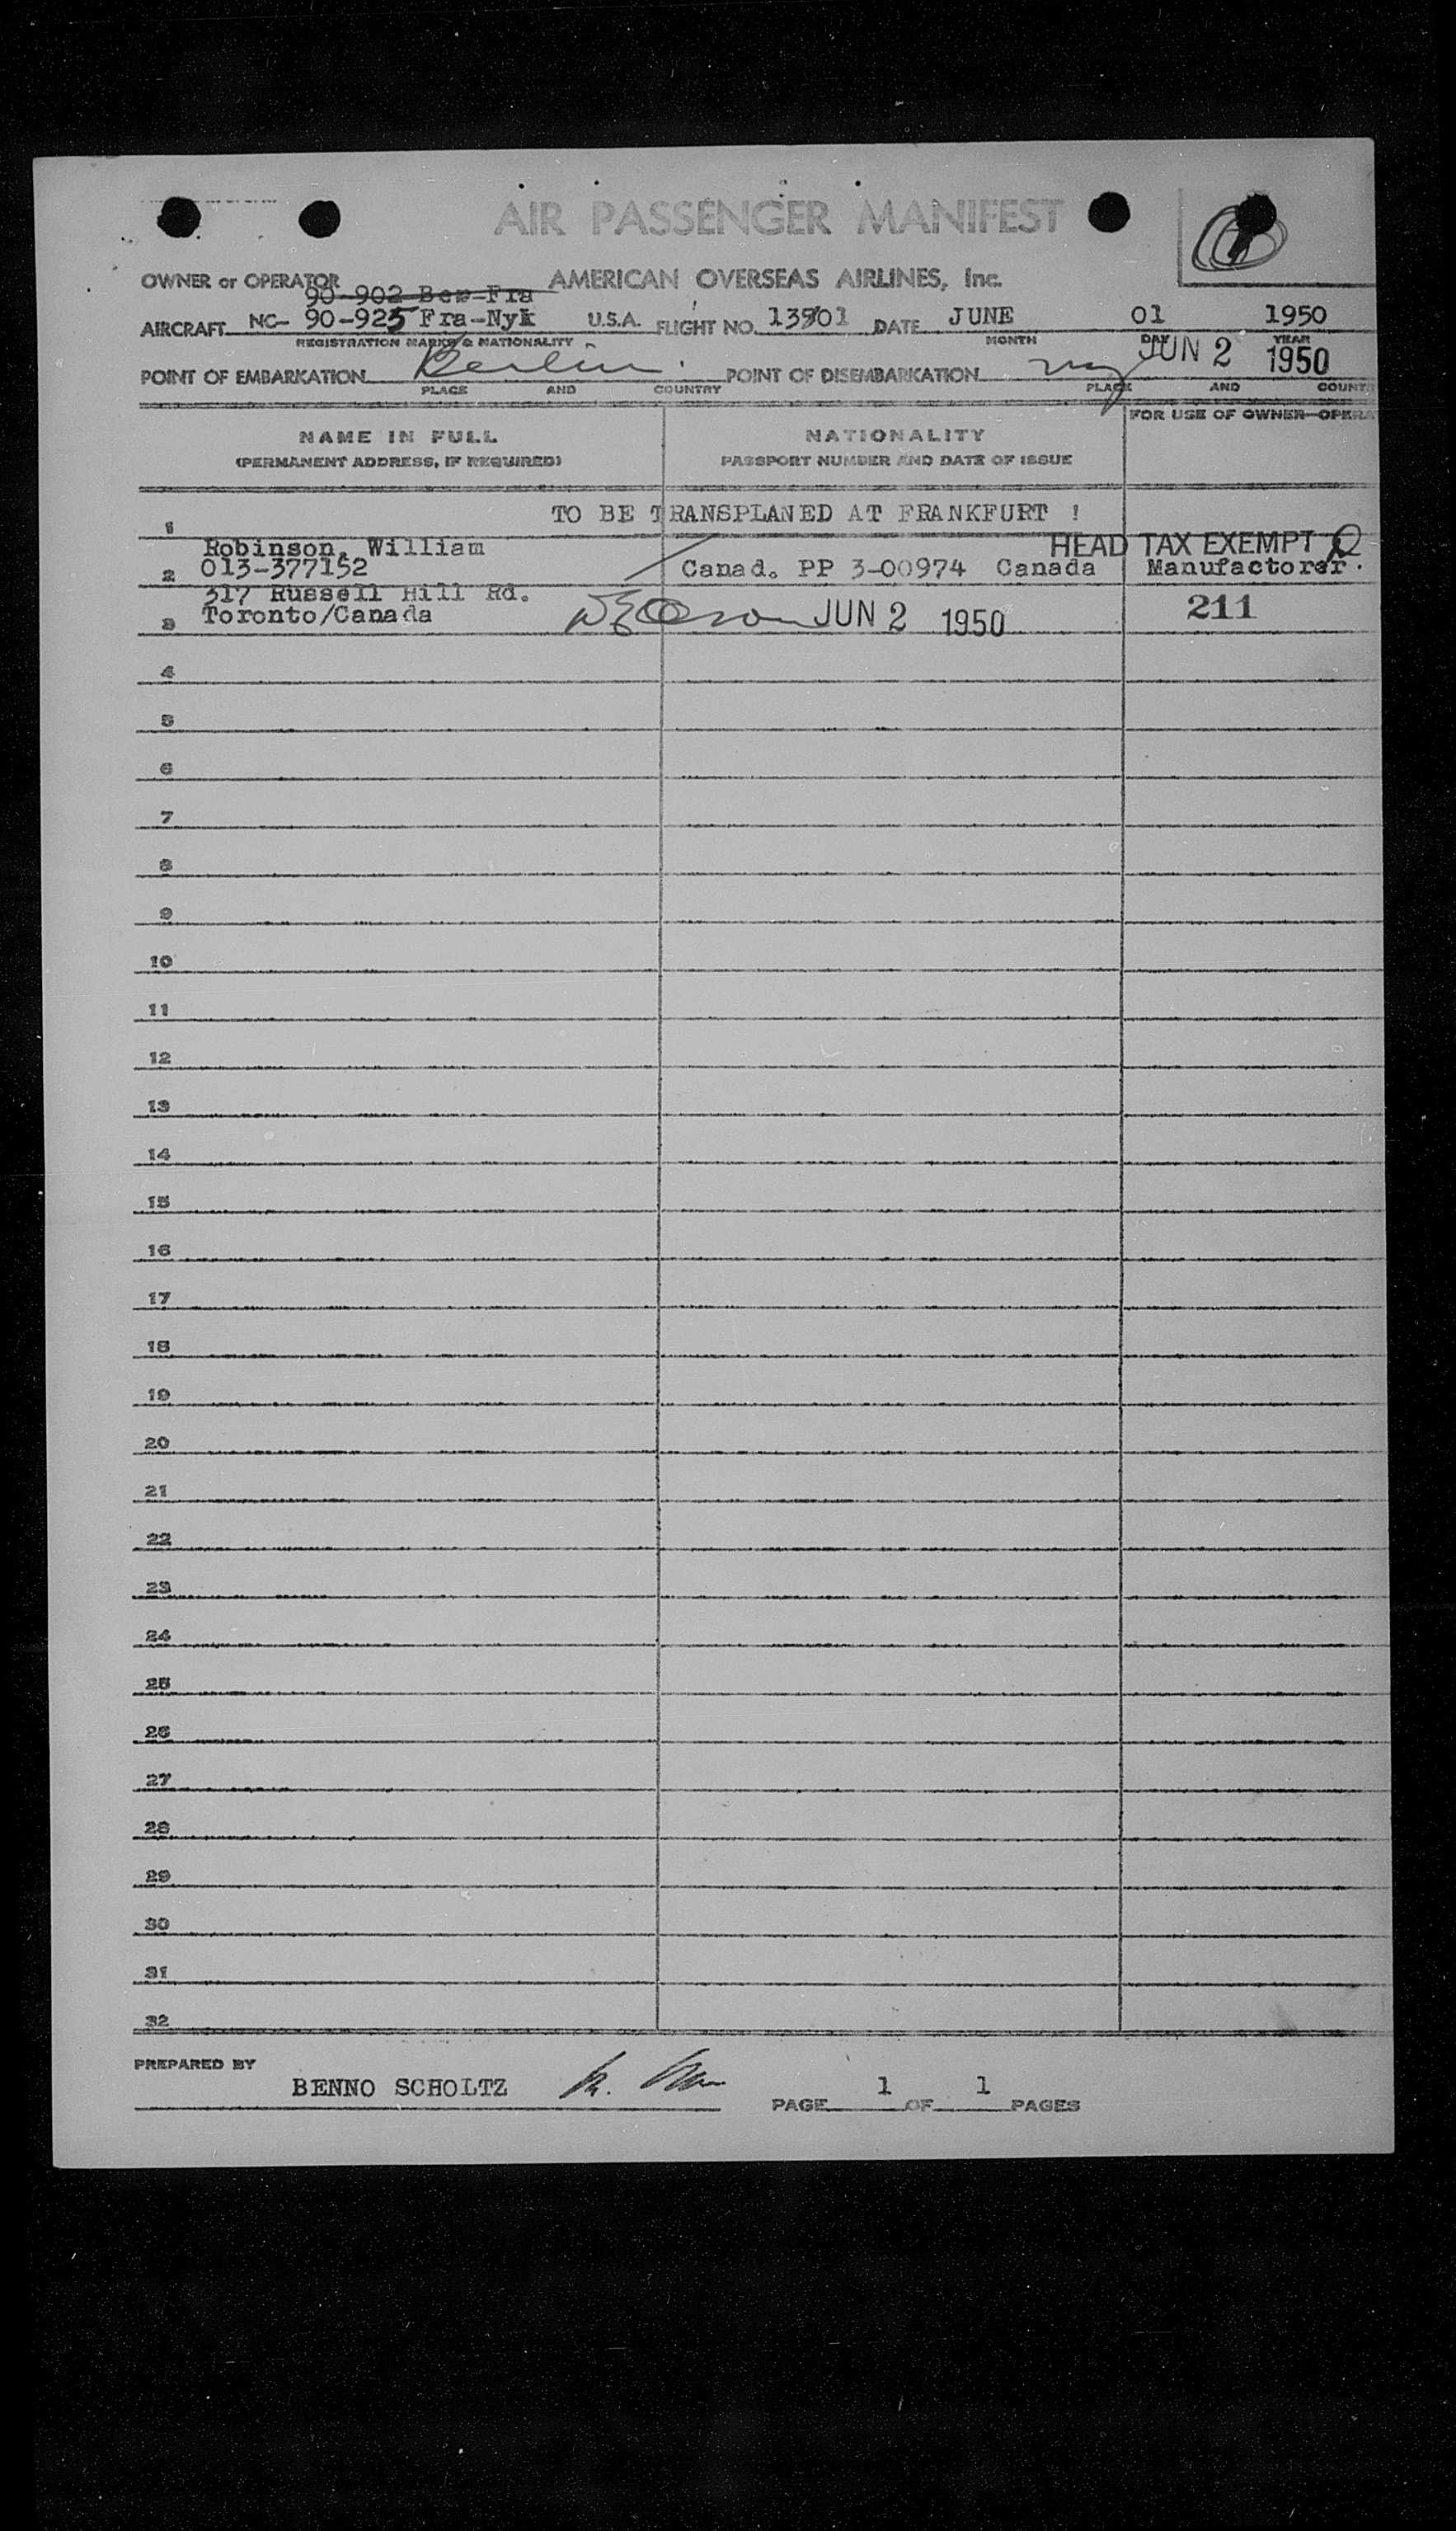 AIR PASSENGER MANIFEST
OWNER or OPERATOR AMERICAN OVERSEAS AIRLINES, Inc.
90-902 Ber-Fra
AIRCRAFT NC- 90-925 Fra-Nyk U.S.A. FLIGHT NO. 13901 DATE JUNE 01 1950
REGISTRATION MARKS & NATIONALITY MONTH DAY YEAR
JUN 2 1950
POINT OF EMBARKATION Berlin POINT OF DISEMBARKATION ny
PLACE AND COUNTRY PLACE AND COUNT
FOR USE OF OWNER-OPERA
NAME IN FULL NATIONALITY
(PERMANENT ADDRESS, IF REQUIRED) PASSPORT NUMBER AND DATE OF ISSUE
1 TO BE TRANSPLANED AT FRANKFURT !
Robinson, William HEAD TAX EXEMPT
2 013-377152 Canad. PP 3-00974 Canada Manufactorer.
317 Russell Hill Rd.
3 Toronto/Canada JUN 2 1950 211
4
5
6
7
8
9
10
11
12
13
14
15
16
17
18
19
20
21
22
23
24
25
26
27
28
29
30
31
32
PREPARED BY
BENNO SCHOLTZ
PAGE 1 OF 1 PAGES